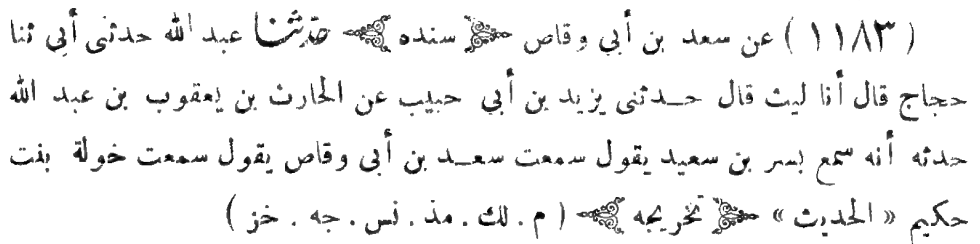 ( ١١٨٣ ) عن سعد بن أبي وقاص ﴿ سنده ﴾ حَدَّثَنَا عبد الله حدثنى أبي ثنا
حجاج قال أنا ليث قال حدثنى يزيد بن أبي حبيب عن الحارث بن يعقوب بن عبد الله
حدثه أنه سمع بسر بن سعيد يقول سمعت سعد بن أبى وقاص يقول سمعت خولة بنت
حكيم « الحديث » ﴿ تخريجه ﴾ ( م . لك . مذ . نس . جه . خز )